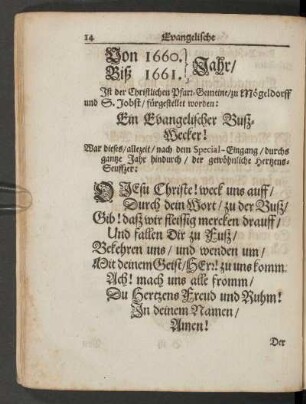 14 Evangelische
Von 1660. } Jahr/
Biß 1661.
Ist der Christlichen Pfarr-Gemeine/ zu Mögeldorff
und S. Jobst/ fürgestellet worden:
Ein Evangelischer Buß-
Wecker!
War dieses/ allezeit/ nach dem Special-Eingang/ durchs
gantze Jahr hindurch/ der gewöhnliche Hertzens-
Seuffzer:
O JEsu Christe! weck uns auff/
Durch dein Wort/ zu der Buß/
Gib! daß wir fleissig mercken drauff/
Und fallen Dir zu Fuß/
Bekehren uns/ und wenden um/
Mit deinem Geist/ HErr! zu uns komm.
Ach! mach uns alle fromm/
Du Hertzens Freud und Ruhm!
In deinem Namen/
Amen!
Der